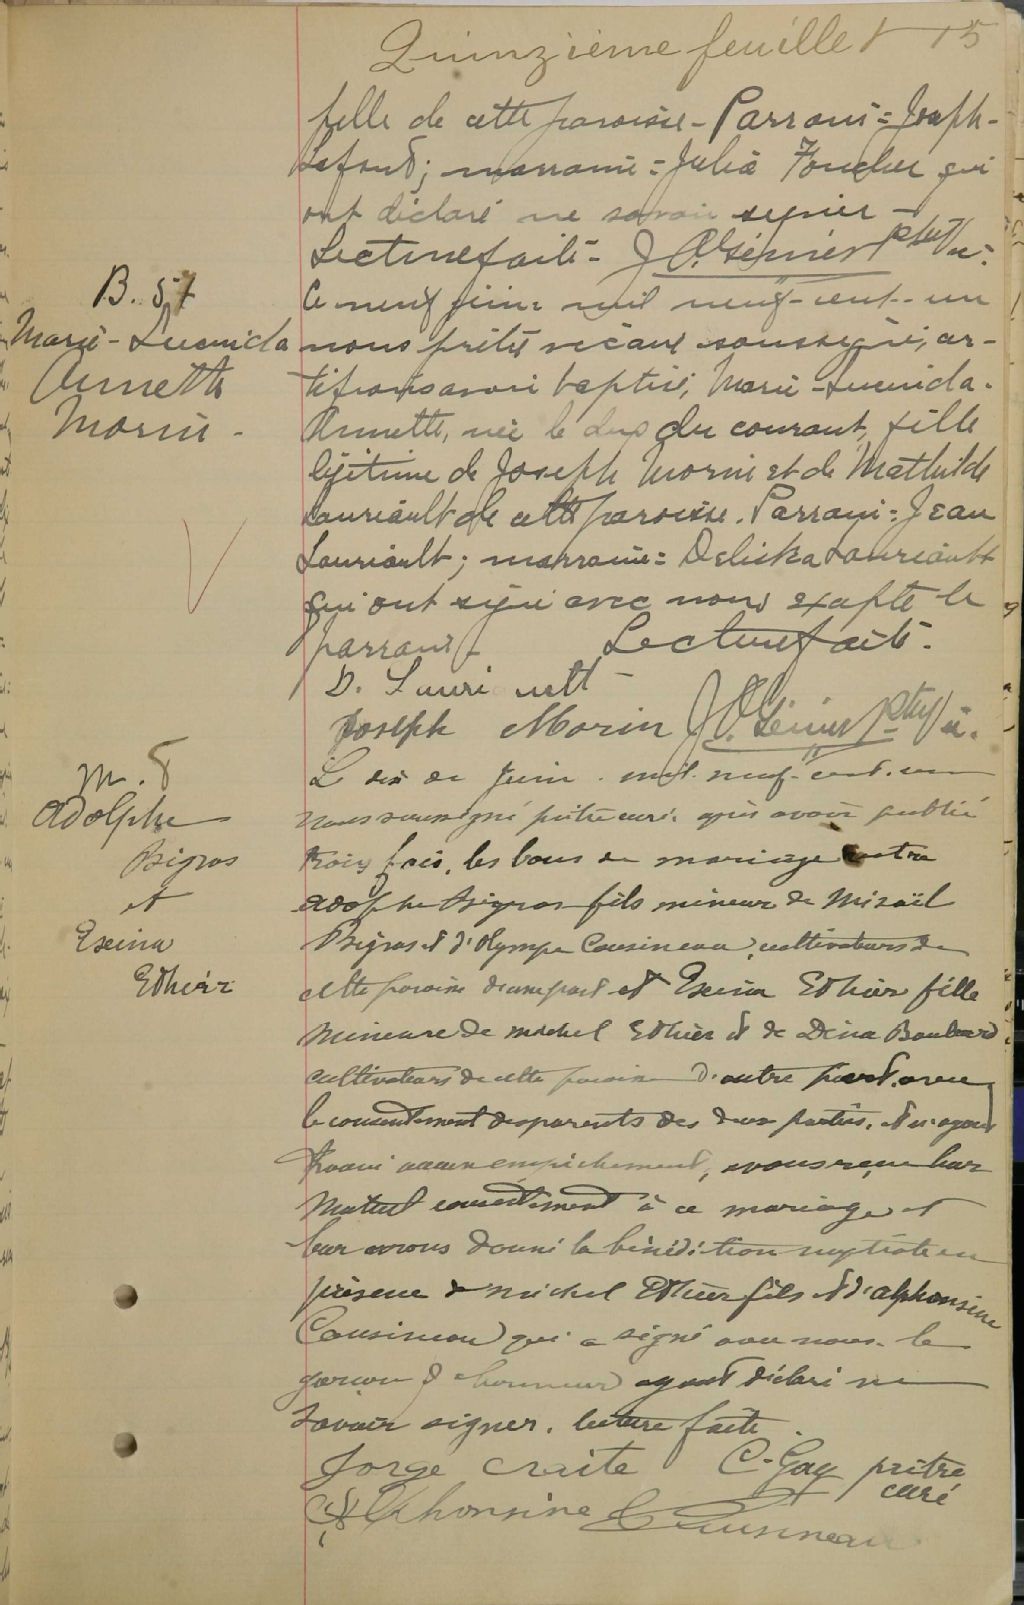 Quinzième feuillet 15
fille de cette paroisse - Parrain = Joseph -
Lafond; marraine = Julia Foucher qui
ont déclaré ne savoir signer -
Lecture faite - J. O. Génier Ptre V.
B. 57
Marie - Lucinda
Annette
Morin -
Ce neuf juin mil neuf-cent-un
nous prêtre vicaire soussigné, cer-
tifions avoir baptisé, Marie - Lucinda -
Annette, née le du courant, fille
légitime de Joseph Morin et de Mathilde
Lauriault de cette paroisse. Parrain = Jean
Lauriault; marraine = Deliska Lauriault
qui ont signé avec nous excepté le
parrain - Lecture faite -
D. Lauriault -
Joseph Morin J. O. Génier Ptre V.
M. 8
Adolphe
Bigras
et
Exina
Ethier
Le dix de Juin mil-neuf-cent-un
nous soussigné prêtre curé après avoir publié
trois fois les bans de mariage entre
Adolphe Bigras fils mineur de Mizaël
Bigras et d'Olympe Cousineau, cultivateurs de
cette paroisse d'une part et Exina Ethier fille
mineure de Michel Ethier et de Dina Boulard
cultivateurs de cette paroisse d'autre part, avec
le consentement des parents des deux parties, et n'ayant
trouvé aucun empêchement, avons reçu leur
mutuel consentement à ce mariage et
leur avons donné la bénédiction nuptiale en
présence de Michel Ethier fils et d'Alphonsine
Cousineau qui a signé avec nous. le
garçon d'honneur ayant déclaré ne
savoir signer. lecture faite
Jorge Craite C. Gay prêtre
curé
Alphonsine Cousineau